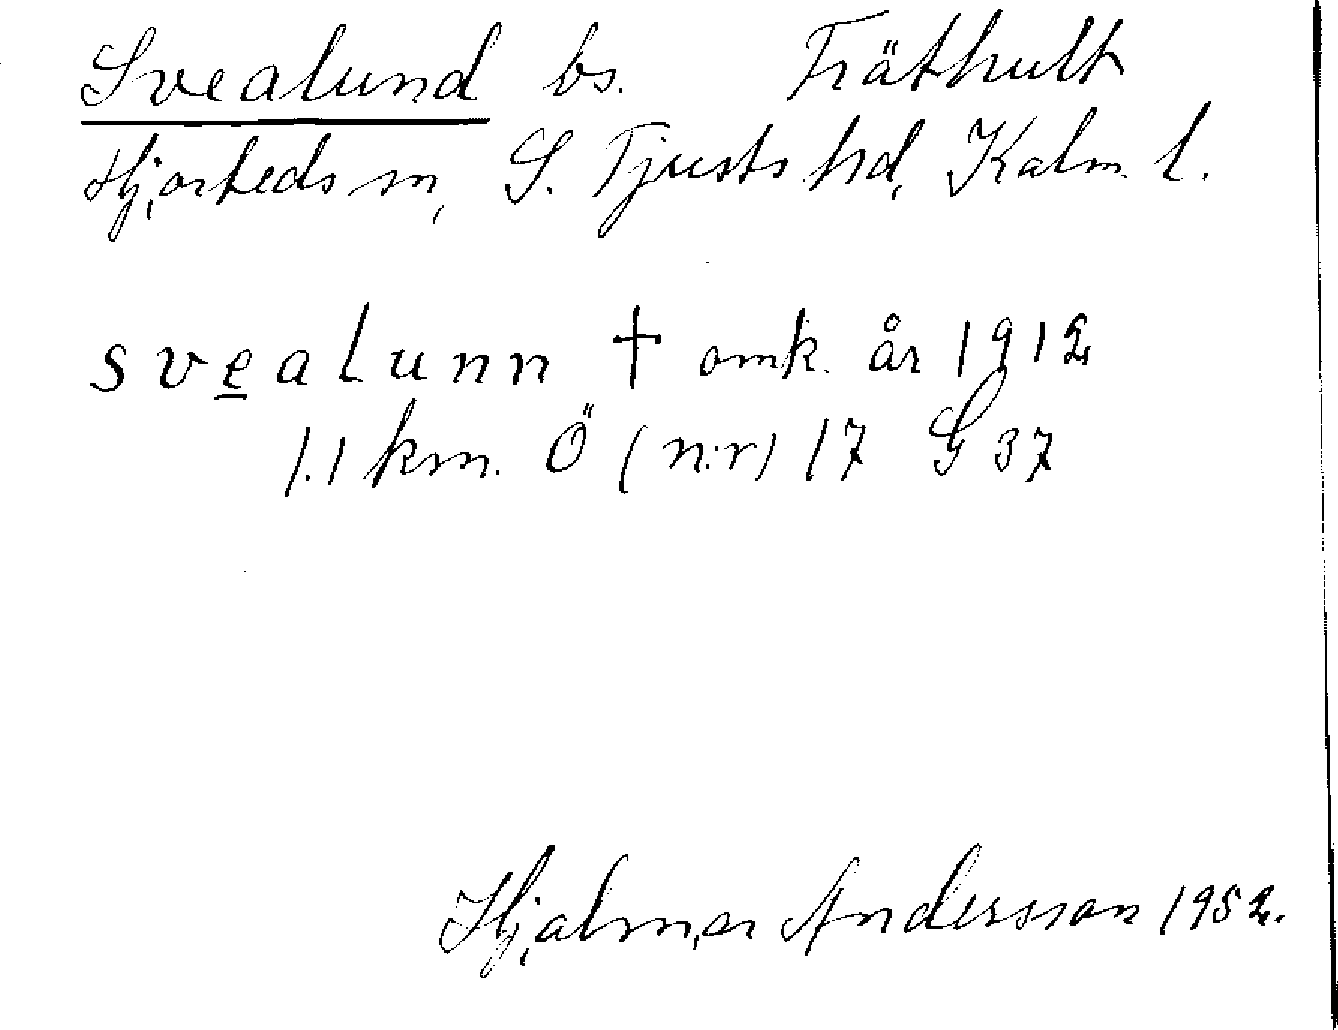 Svealund bs. Fräthult
Hjorteds sn, S. Tjusts hd, Kalm. l.
svealunn † omk. år 1912
1.1 km. Ö (n:r) 17 G 37
Hjalmar Andersson 1952.